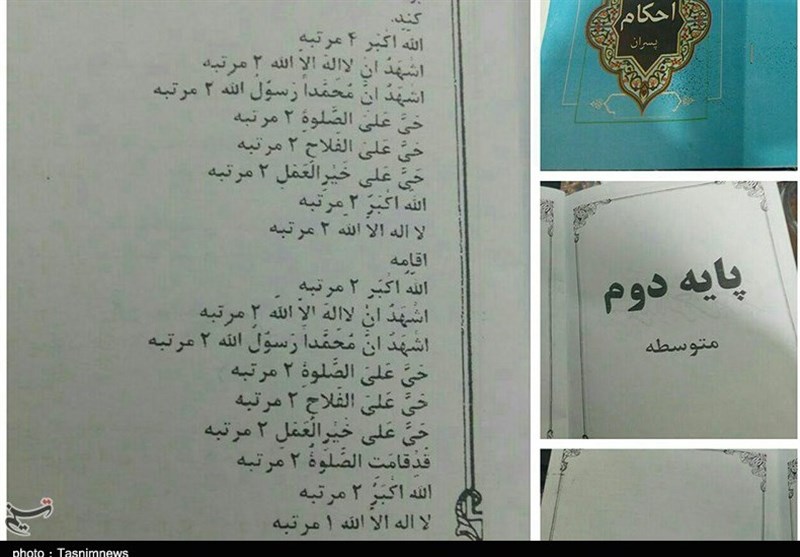 کنید.
الله اکبر ۴ مرتبه
اشهَدُ انَّ لااله الاّ الله ۲ مرتبه
اشهَدُ انَّ مُحَمَّداً رَسولُ الله ۲ مرتبه
حَیَّ عَلیَ الصَّلوةِ ۲ مرتبه
حَیَّ عَلیَ الفَلاحِ ۲ مرتبه
حَیَّ عَلی خَیرِالعَمَلِ ۲ مرتبه
الله اکبَر ۲ مرتبه
لا اله الاّ الله ۲ مرتبه
اقامه
الله اکبَر ۲ مرتبه
اشهَدُ انْ لااله الاّ الله ۲ مرتبه
اشهَدُ انَّ مُحَمَّداً رَسولُ الله ۲ مرتبه
حَیَّ عَلیَ الصَّلوةِ ۲ مرتبه
حَیَّ عَلیَ الفَلاحِ ۲ مرتبه
حَیَّ عَلی خَیرِالعَمَلِ ۲ مرتبه
قَدقامَتِ الصَّلوةُ ۲ مرتبه
الله اکبَرُ ۲ مرتبه
لا اله الاّ الله ۱ مرتبه
احکام
پسران
پایه دوم
متوسطه
تسنیم
photo : Tasnimnews